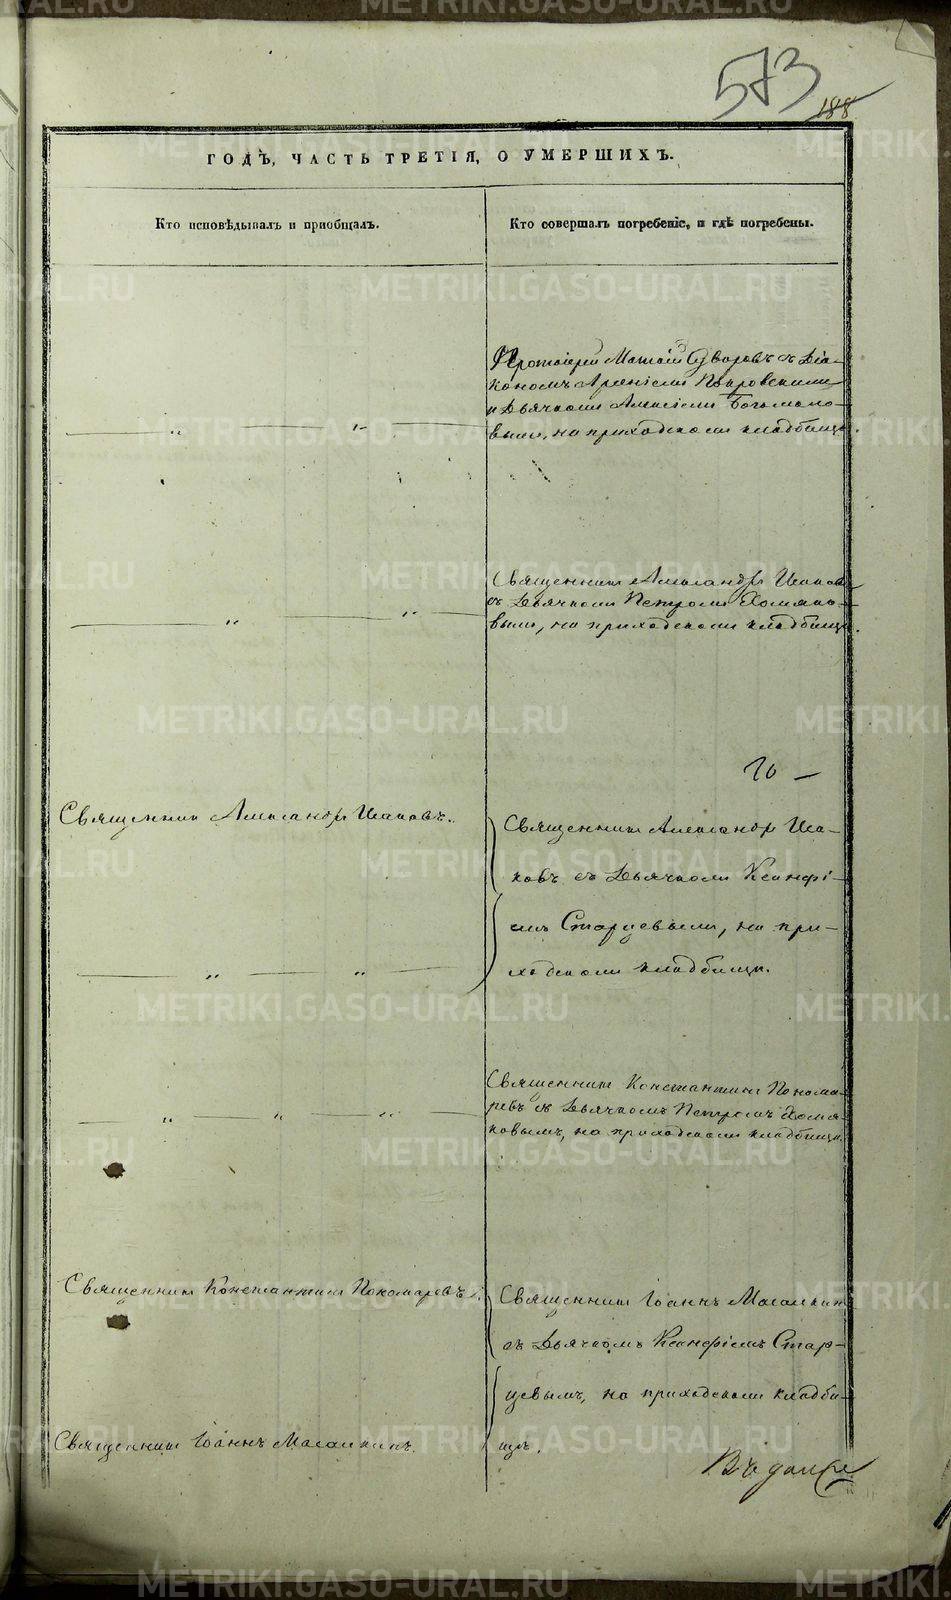 573
188
ГОДЪ, ЧАСТЬ ТРЕТІЯ, О УМЕРШИХЪ.
Кто исповѣдывалъ и пріобщалъ.
Кто совершалъ погребеніе, и гдѣ погребены.
Протоіерей Матѳій Суворовъ съ Діа-
кономъ Арсеніемъ Покровскимъ
и Дьячкомъ Алексіемъ Богомоло-
вымъ, на приходскомъ кладбищѣ.
Священникъ Александръ Исаковъ
съ Дьячкомъ Петромъ Хомяко-
вымъ, на приходскомъ кладбищѣ.
Священникъ Александръ Исаковъ.
Священникъ Александръ Иса-
ковъ съ Дьячкомъ Ксенофі-
емъ Старцевымъ, на при-
ходскомъ кладбищѣ.
Священникъ Константинъ Понома-
ревъ съ Дьячкомъ Петромъ Хомя-
ковымъ, на приходскомъ кладбищѣ.
Священникъ Константинъ Пономаревъ.
Священникъ Іоаннъ Масалкинъ
съ Дьячкомъ Ксенофіемъ Стар-
цевымъ, на приходскомъ кладби-
щѣ.
Священникъ Іоаннъ Масалкинъ.
METRIKI.GASO-URAL.RU